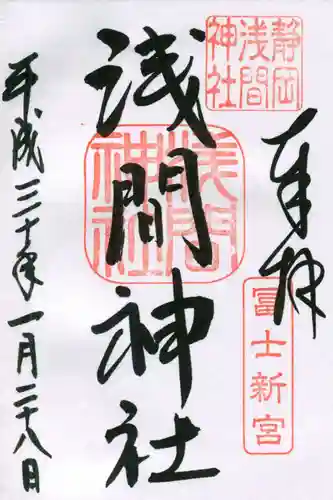 奉拝
静岡浅間神社
富士新宮
浅間神社
浅間神社
平成三十年一月二十八日